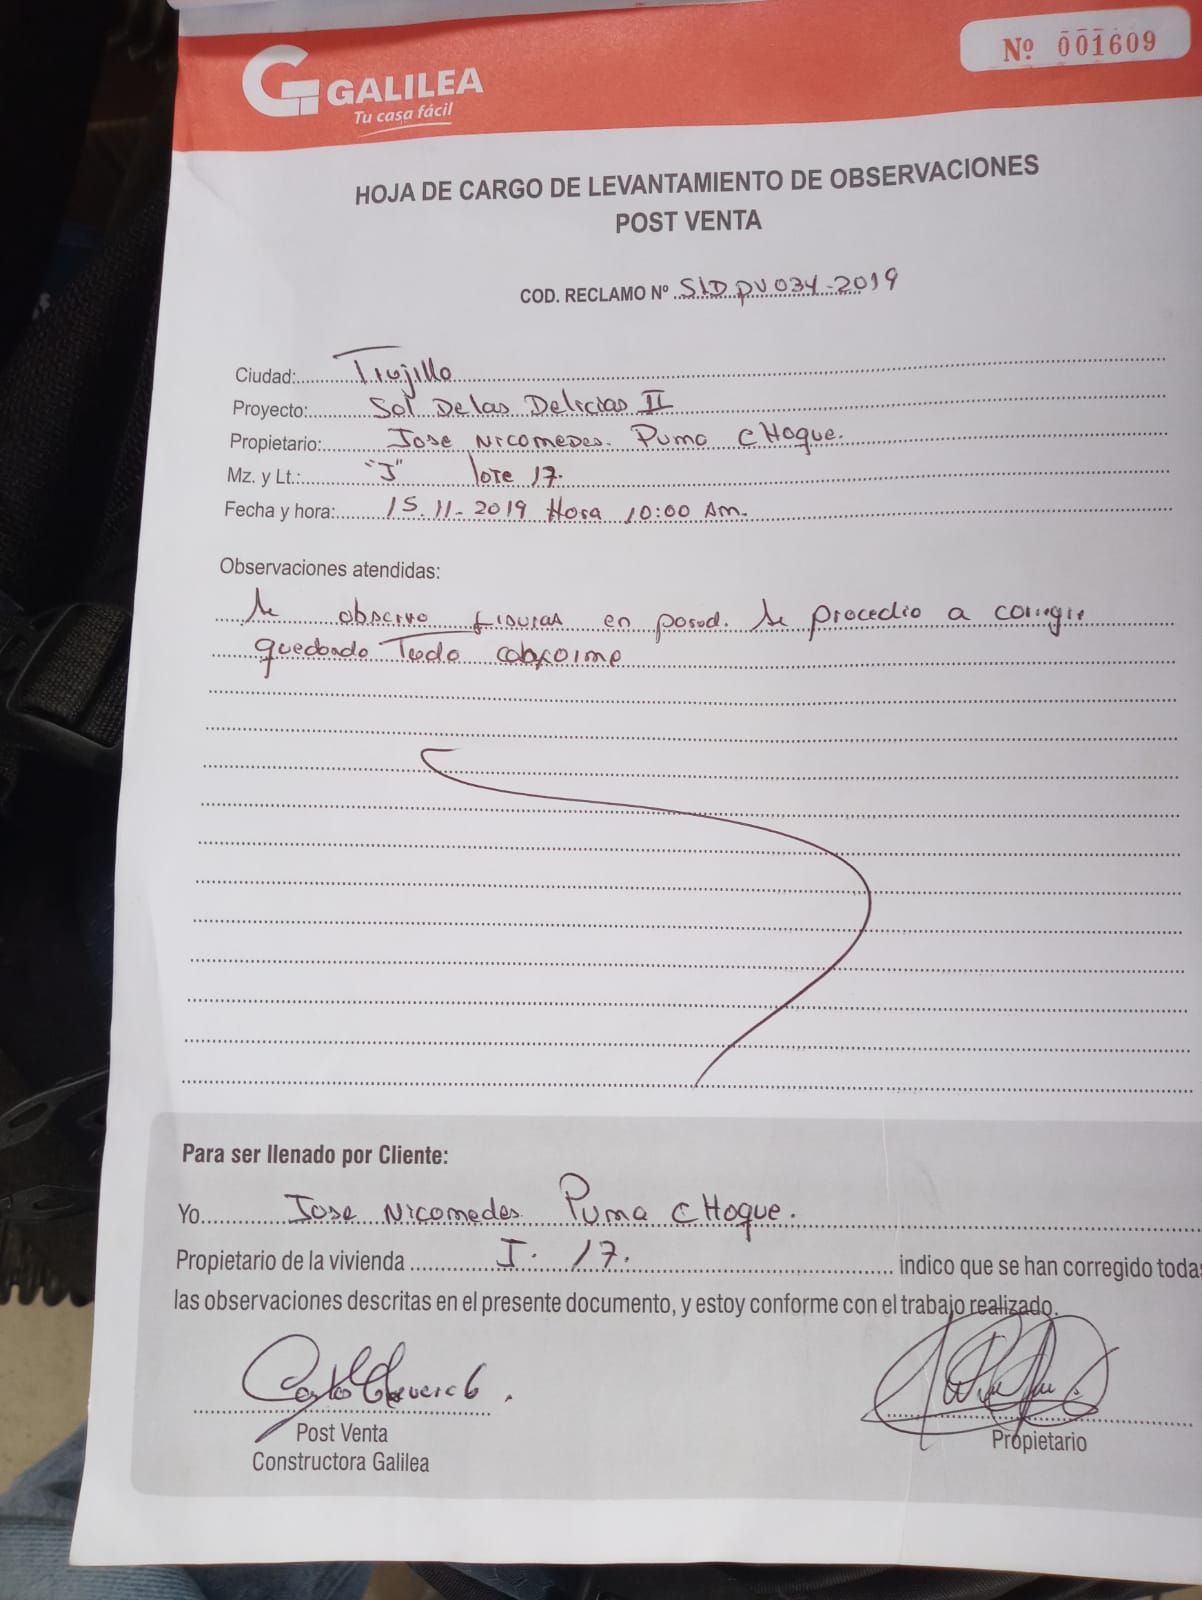 GALILEA
Tu casa fácil
Nº 001609
HOJA DE CARGO DE LEVANTAMIENTO DE OBSERVACIONES
POST VENTA
COD. RECLAMO Nº SLD PV 034-2019
Ciudad: Trujillo
Proyecto: Sol De las Delicias II
Propietario: Jose Nicomedes. Puma CHoque.
Mz. y Lt.: "J" lote 17.
Fecha y hora: 15.11-2019 Hora 10:00 Am.
Observaciones atendidas:
Se observo fisuras en pared. Se procedio a corregir
quedando Todo
Para ser llenado por Cliente:
Yo Jose Nicomedes Puma CHoque.
Propietario de la vivienda J. 17. indico que se han corregido todas
las observaciones descritas en el presente documento, y estoy conforme con el trabajo realizado.
Post Venta
Propietario
Constructora Galilea